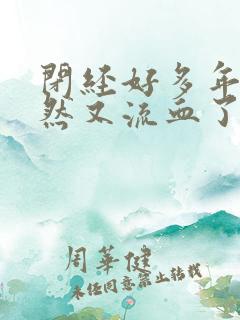 閉經好多年
然又流血了
周華健
未经同意禁止转载